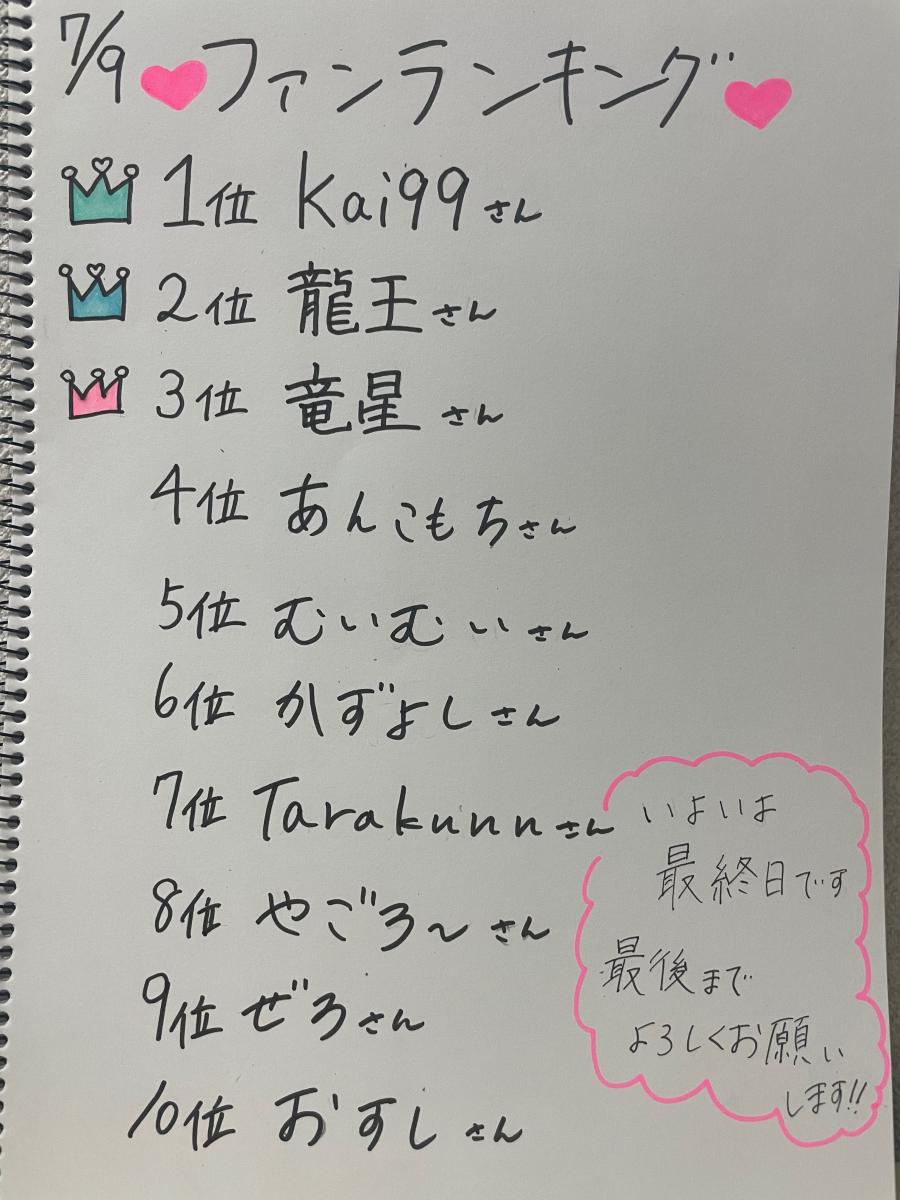 7/9 ファンランキング
1位 kai99さん
2位 龍王さん
3位 竜星さん
4位 あんこもちさん
5位 むいむいさん
6位 かずよしさん
7位 Tarakunnさん
8位 やごろ〜さん
9位 ぜろさん
10位 おすしさん
いよいよ
最終日です
最後まで
よろしくお願い
します!!